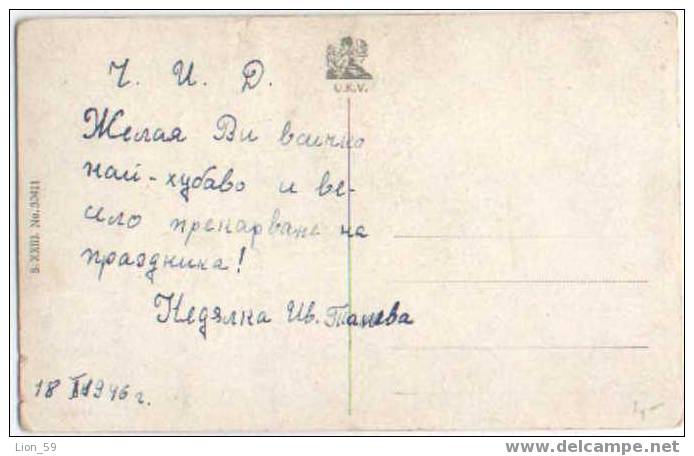 Ч. И. Д.
U.K.V.
Желая Ви всичко
най-хубаво и ве-
село прекарване на
праздника!
Недялка Ив. Танева
18 1946 г.
S. XXIII. No. 33411
Lion_59
www.delcampe.net